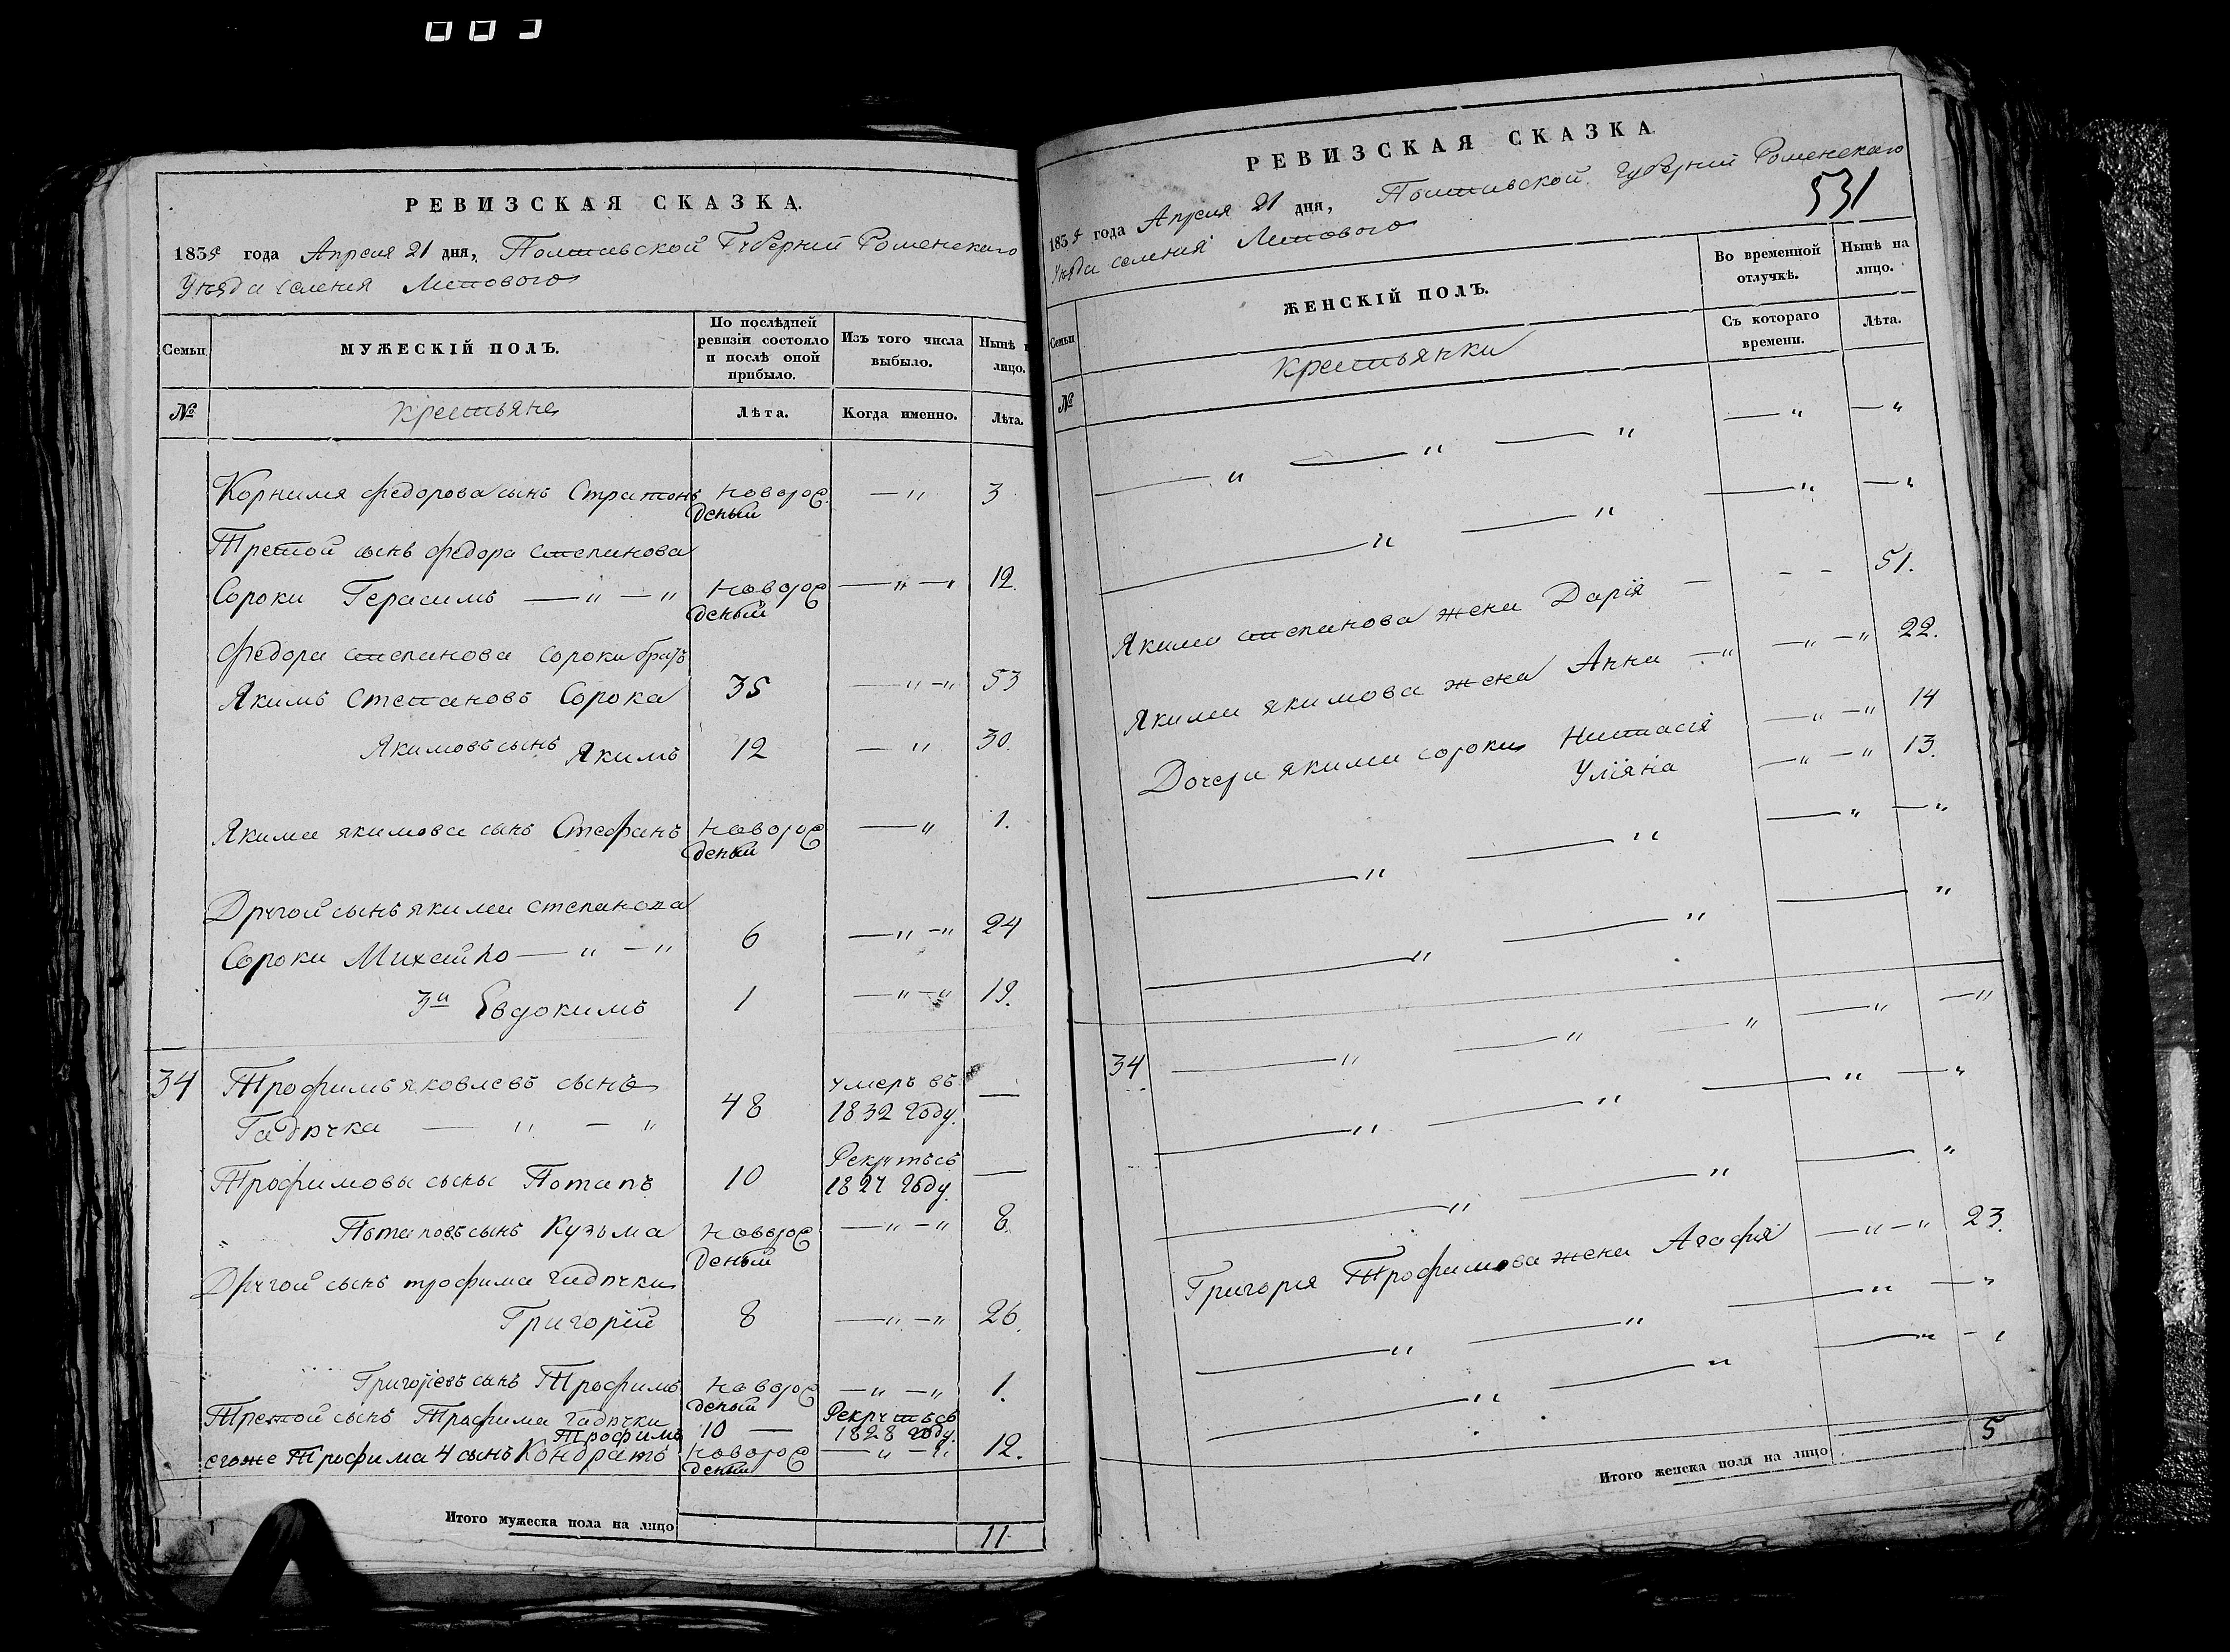 РЕВИЗСКАЯ СКАЗКА.
1834 года Апреля 21 дня, Полтавской Губернии Роменского
Уезда селения Липового
Семьи МУЖЕСКІЙ ПОЛЪ. По послѣдней ревизіи состояло и послѣ оной прибыло. Изъ того числа выбыло. Нынѣ лицо.
№ крестьяне Лѣта. Когда именно. Лѣта.
Корнилия федорова сынъ Стратонъ новорож — " 3
деный
Третой сынъ федора степанова
Сороки Герасимъ — " — " новорож — " — " 12.
деный
федора степанова сороки братъ
Якимъ Степановъ Сорока 35 — " — " 53
Якимовъ сынъ Якимъ 12 — " 30.
Якима якимова сынъ Стефанъ новорож — " 1.
деный
Другой сынъ якима степанова
Сороки Михайло — " — " 6 — " — " 24
3й Евдокимъ 1 — " — " 19.
34 Трофимъ яковлевъ сынъ умеръ въ
Гадючка — " — " 48 1832 году. —
Рекрутъ съ
Трофимовы сыны Потапъ 10 1827 году —
" Потаповъ сынъ Кузьма новорож — " — " 8.
деный
Другой сынъ трофима гадючки
Григорій 8 — " — " 26.
Григоріевъ сынъ Трофимъ новорож — " — " 1.
деный
Третой сынъ Трофима гадючки Рекрутъ съ
Трофимъ 10 — 1828 году.
егоже Трофима 4 сынъ Кондратъ новорож — " — " 12.
деный
Итого мужеска пола на лицо 11
РЕВИЗСКАЯ СКАЗКА
531
1834 года Апреля 21 дня, Полтавской Губернии Роменского
Уезда селения Липового
Семьи ЖЕНСКІЙ ПОЛЪ. Во временной отлучкѣ. Нынѣ на лицо.
№ крестьянки Съ котораго времени. Лѣта.
— " — " — " — " — "
— " — " — " — "
Якима степанова жена Дарія — - - 51.
Якима якимова жена Анна — " — " — " 22.
Дочери якима сороки Нистасія — " — " 14
Уліяна — " — " 13.
— " — " — " — "
— " — " — "
34 — " — " — " — " — "
— " — " — " — "
— " — " — "
Григорія Трофимова жена Агафія — " — " 23.
— " — " — " — "
— " — " — " — "
Итого женска пола на лицо 5